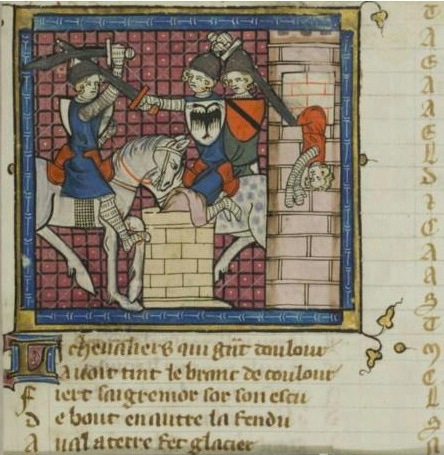 chevaliers qui gñt doulour
auoit tint le branc de coulour
F iert saigremor sor son escu
D e bout en autre la fendu
A ual a terre fet glacier
A
A
L
D
I
C
A
A
S
T